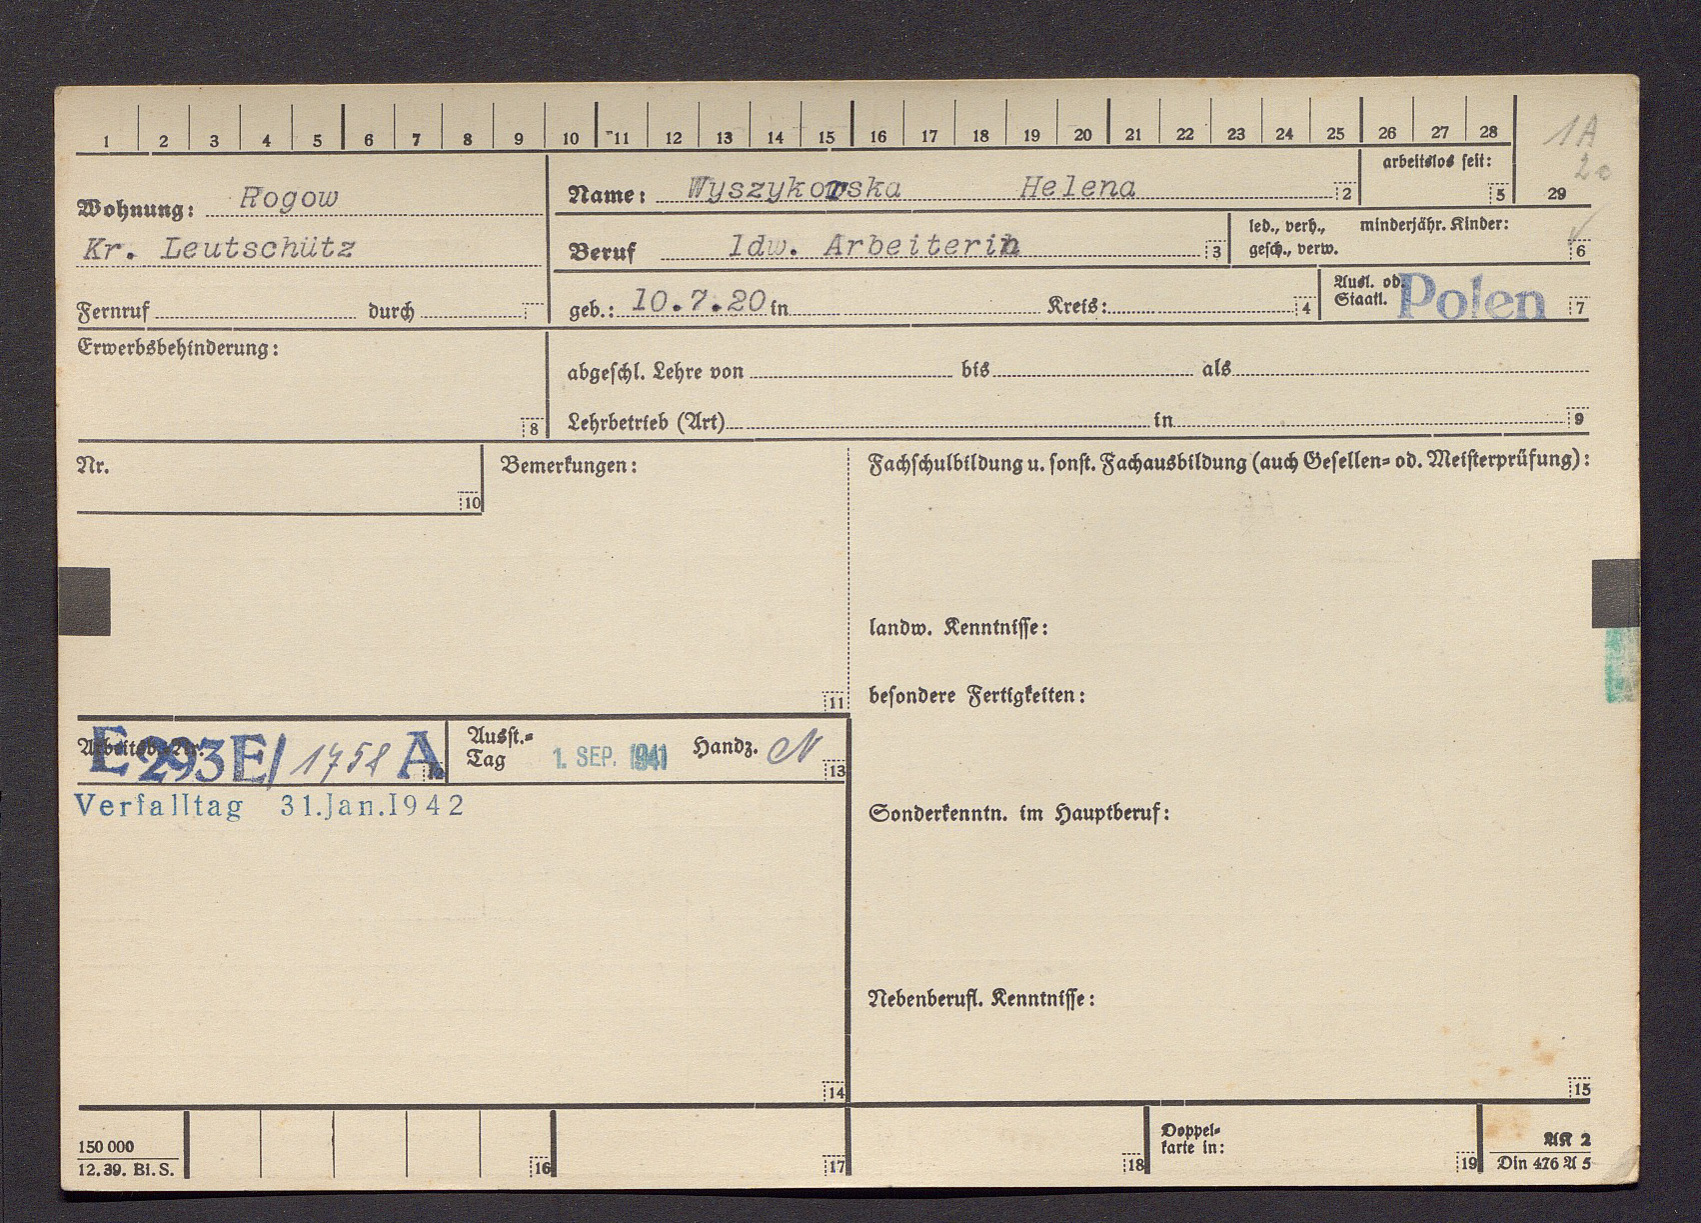 1 2 3 4 5 6 7 8 9 10 11 12 13 14 15 16 17 18 19 20 21 22 23 24 25 26 27 28
1A
20
29
arbeitslos seit:
5
Wohnung: Rogow
Kr. Leutschütz
Fernruf durch
Name: Wyszykowska Helena 2
Beruf ldw. Arbeiterin 3
led., verh., minderjähr. Kinder:
gesch., verw. 6
geb.: 10.7.20 in Kreis: 4
Ausl. od.
Staatl. Polen 7
Erwerbsbehinderung:
8
abgeschl. Lehre von bis als
Lehrbetrieb (Art) in 9
Nr.
10
Bemerkungen:
11
Fachschulbildung u. sonst. Fachausbildung (auch Gesellen- od. Meisterprüfung):
landw. Kenntnisse:
besondere Fertigkeiten:
Sonderkenntn. im Hauptberuf:
Nebenberufl. Kenntnisse:
15
Arbeitsb.-Nr.
E 293E/ 1758 A 12
Ausst.-
Tag 1. SEP. 1941 Handz. N 13
Verfalltag 31.Jan.1942
14
150 000
12. 39. Bi. S.
16
17
18
Doppel-
karte in:
19
AK 2
Din 476 A 5